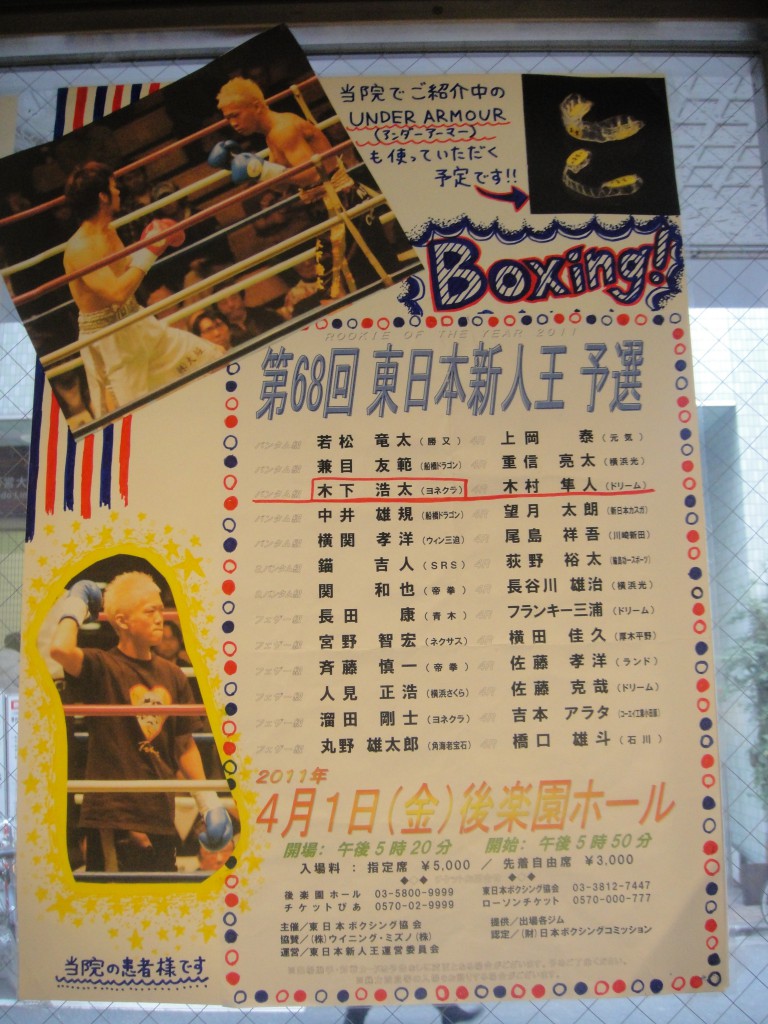 当院でご紹介中の
UNDER ARMOUR
(アンダーアーマー)
も使っていただく
予定です!!
Boxing!
ROOKIE OF THE YEAR 2011
第68回 東日本新人王 予選
バンタム級 若松 竜太 (勝又) 4R 上岡 泰 (元気)
バンタム級 兼目 友範 (船橋ドラゴン) 4R 重信 亮太 (横浜光)
バンタム級 木下 浩太 (ヨネクラ) 4R 木村 隼人 (ドリーム)
バンタム級 中井 雄規 (船橋ドラゴン) 4R 望月 太朗 (新日本カスガ)
バンタム級 横関 孝洋 (ウィン三迫) 4R 尾島 祥吾 (川崎新田)
S.バンタム級 錨 吉人 (SRS) 4R 荻野 裕太
S.バンタム級 関 和也 (帝拳) 4R 長谷川 雄治 (横浜光)
フェザー級 長田 康 (青木) 4R フランキー三浦 (ドリーム)
フェザー級 宮野 智宏 (ネクサス) 4R 横田 佳久 (厚木平野)
フェザー級 斉藤 慎一 (帝拳) 4R 佐藤 孝洋 (ランド)
フェザー級 人見 正浩 (横浜さくら) 4R 佐藤 克哉 (ドリーム)
フェザー級 溜田 剛士 (ヨネクラ) 4R 吉本 アラタ
フェザー級 丸野 雄太郎 (角海老宝石) 4R 橋口 雄斗 (石川)
2011年
4月1日(金)後楽園ホール
開場: 午後5時20分 開始: 午後5時50分
入場料: 指定席 ¥5,000 / 先着自由席 ¥3,000
後楽園ホール 03-5800-9999 東日本ボクシング協会 03-3812-7447
チケットぴあ 0570-02-9999 ローソンチケット 0570-000-777
主催/東日本ボクシング協会 提供/出場各ジム
協賛/(株)ウイニング・ミズノ(株) 認定/(財)日本ボクシングコミッション
運営/東日本新人王運営委員会
当院の患者様です